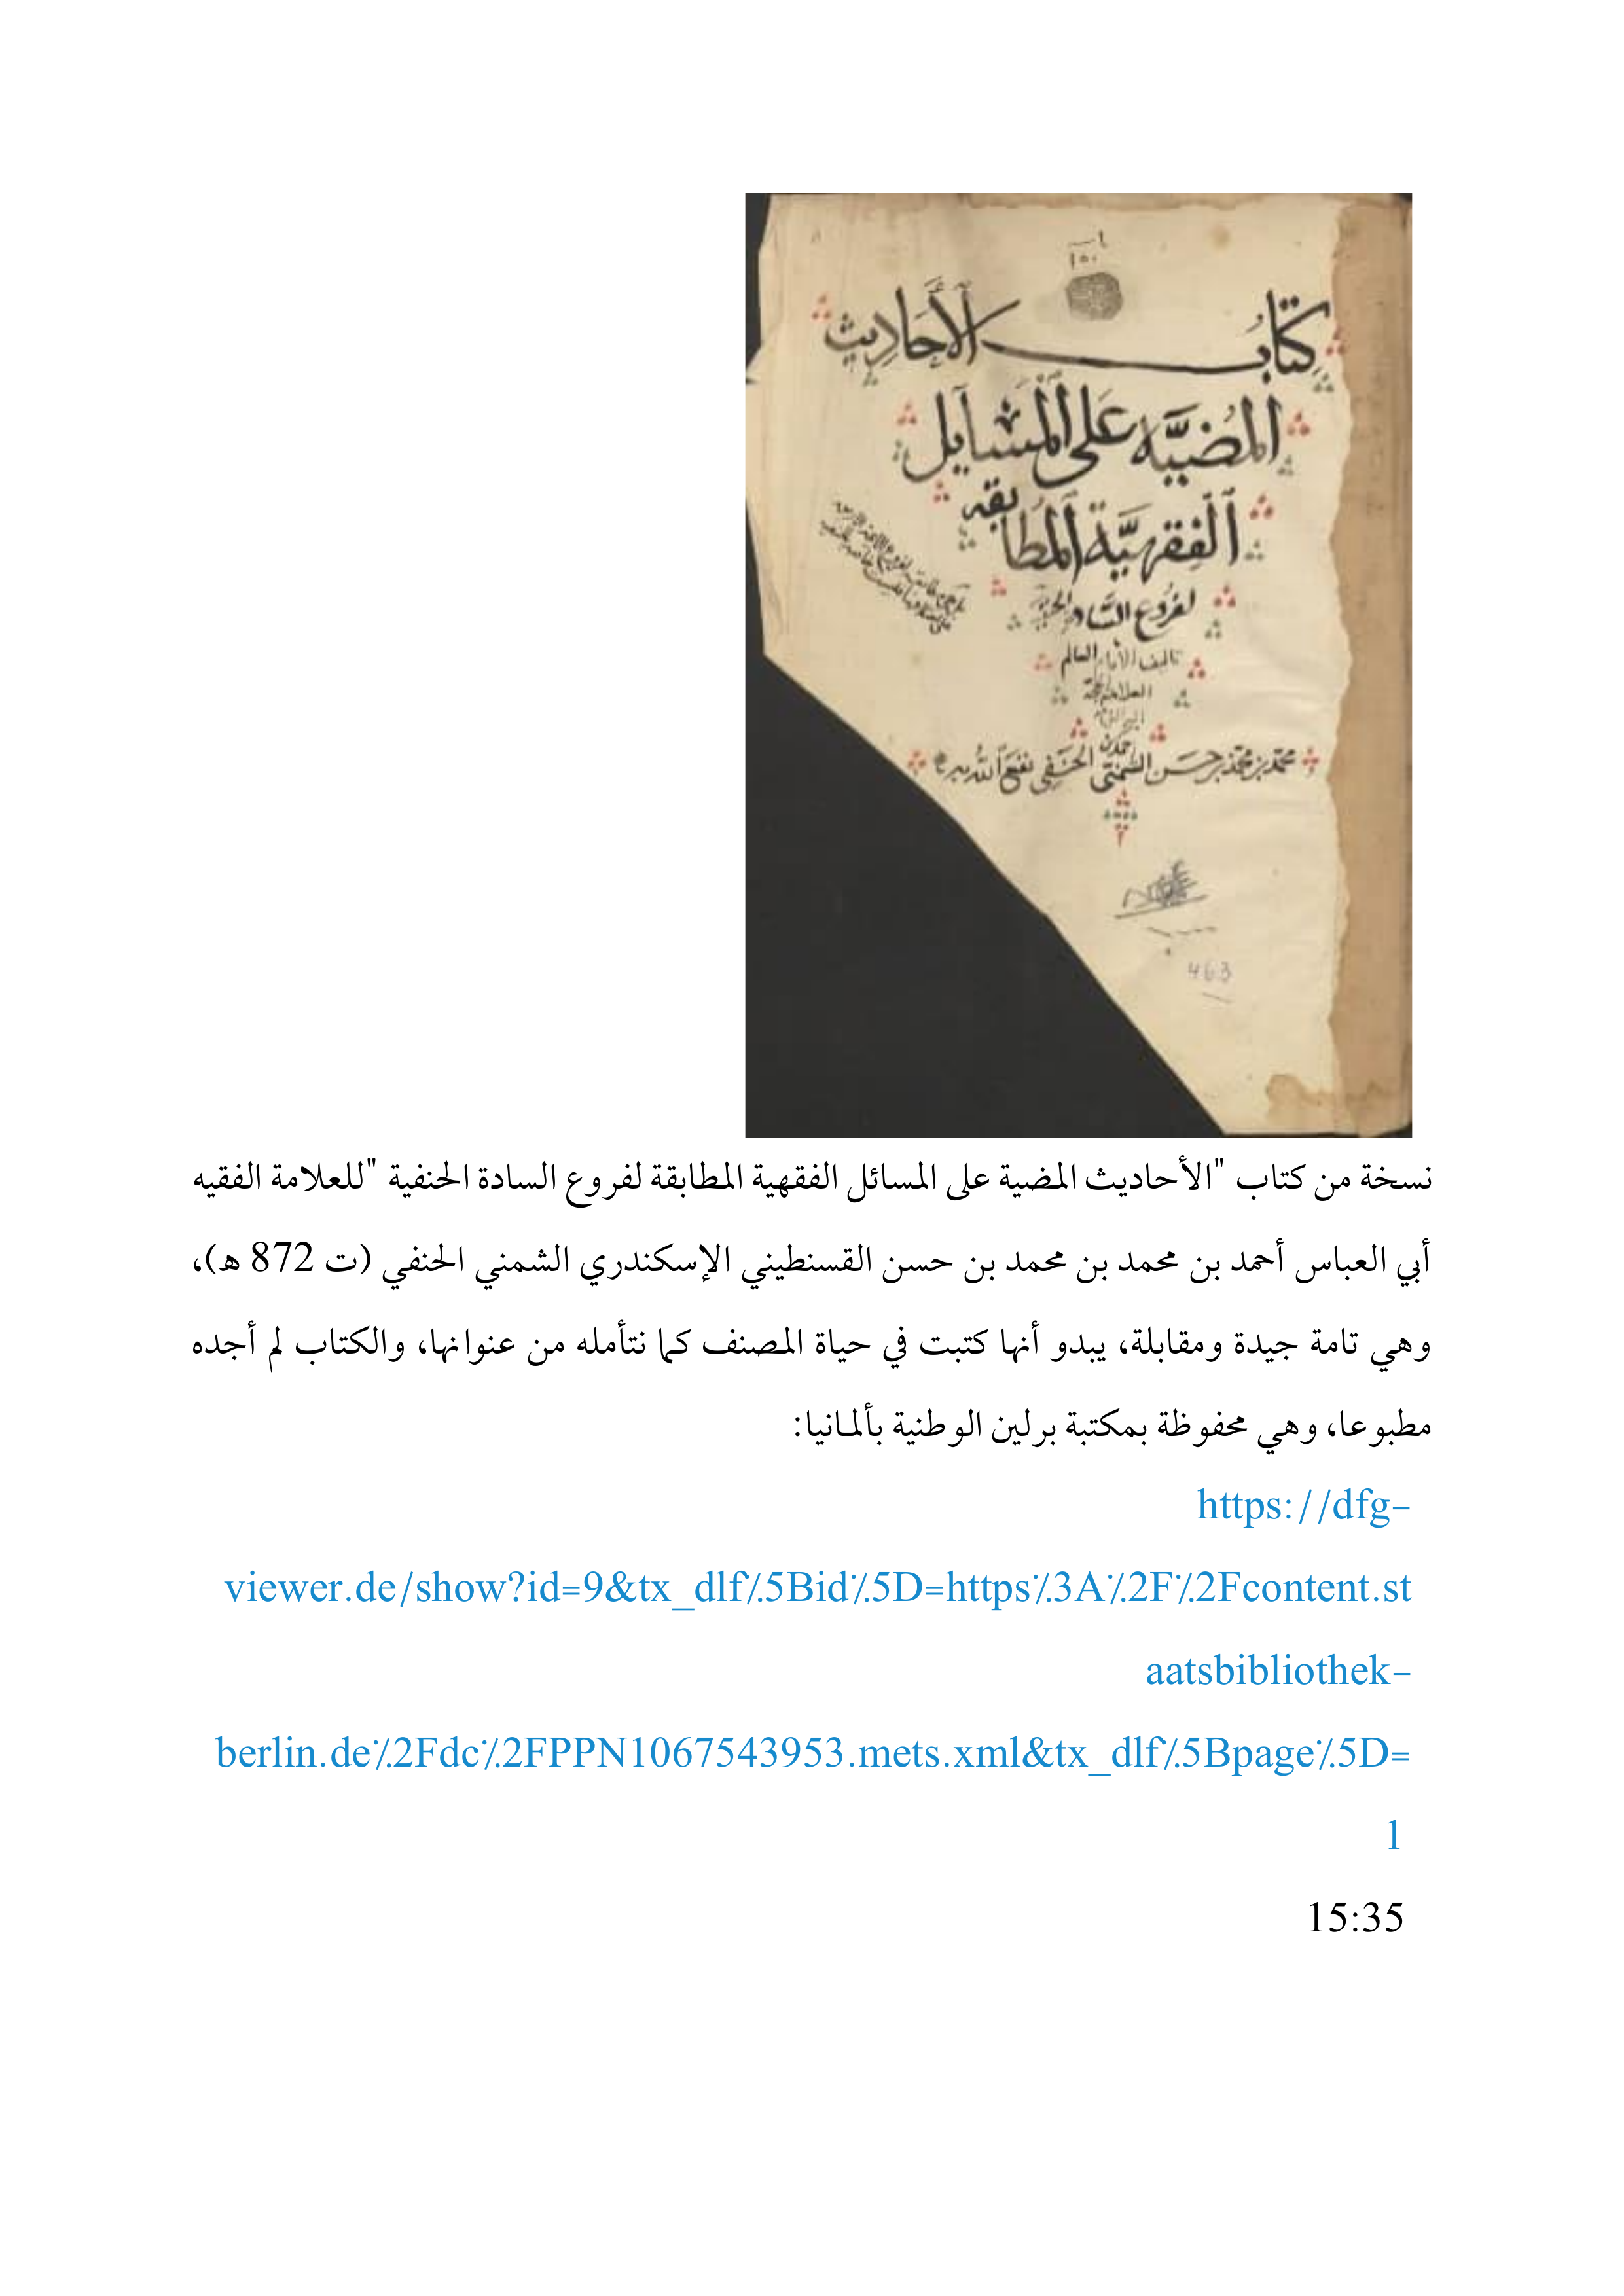 كتاب الأحاديث
المضية على المسايل
الفقهية المطابقه
لفروع الساده الحنفية
تاليف الامام العالم
العلامة
احمد بن
محمد بن محمد بن حسن الشمني الحنفي نفع الله به
463
نسخة من كتاب "الأحاديث المضية على المسائل الفقهية المطابقة لفروع السادة الحنفية "للعلامة الفقيه
أبي العباس أحمد بن محمد بن محمد بن حسن القسنطيني الإسكندري الشمني الحنفي (ت 872 ه)،
وهي تامة جيدة ومقابلة، يبدو أنها كتبت في حياة المصنف كما نتأمله من عنوانها، والكتاب لم أجده
مطبوعا، وهي محفوظة بمكتبة برلين الوطنية بألمانيا:
https://dfg-
viewer.de/show?id=9&tx_dlf%5Bid%5D=https%3A%2F%2Fcontent.st
aatsbibliothek-
berlin.de%2Fdc%2FPPN1067543953.mets.xml&tx_dlf%5Bpage%5D=
1
15:35